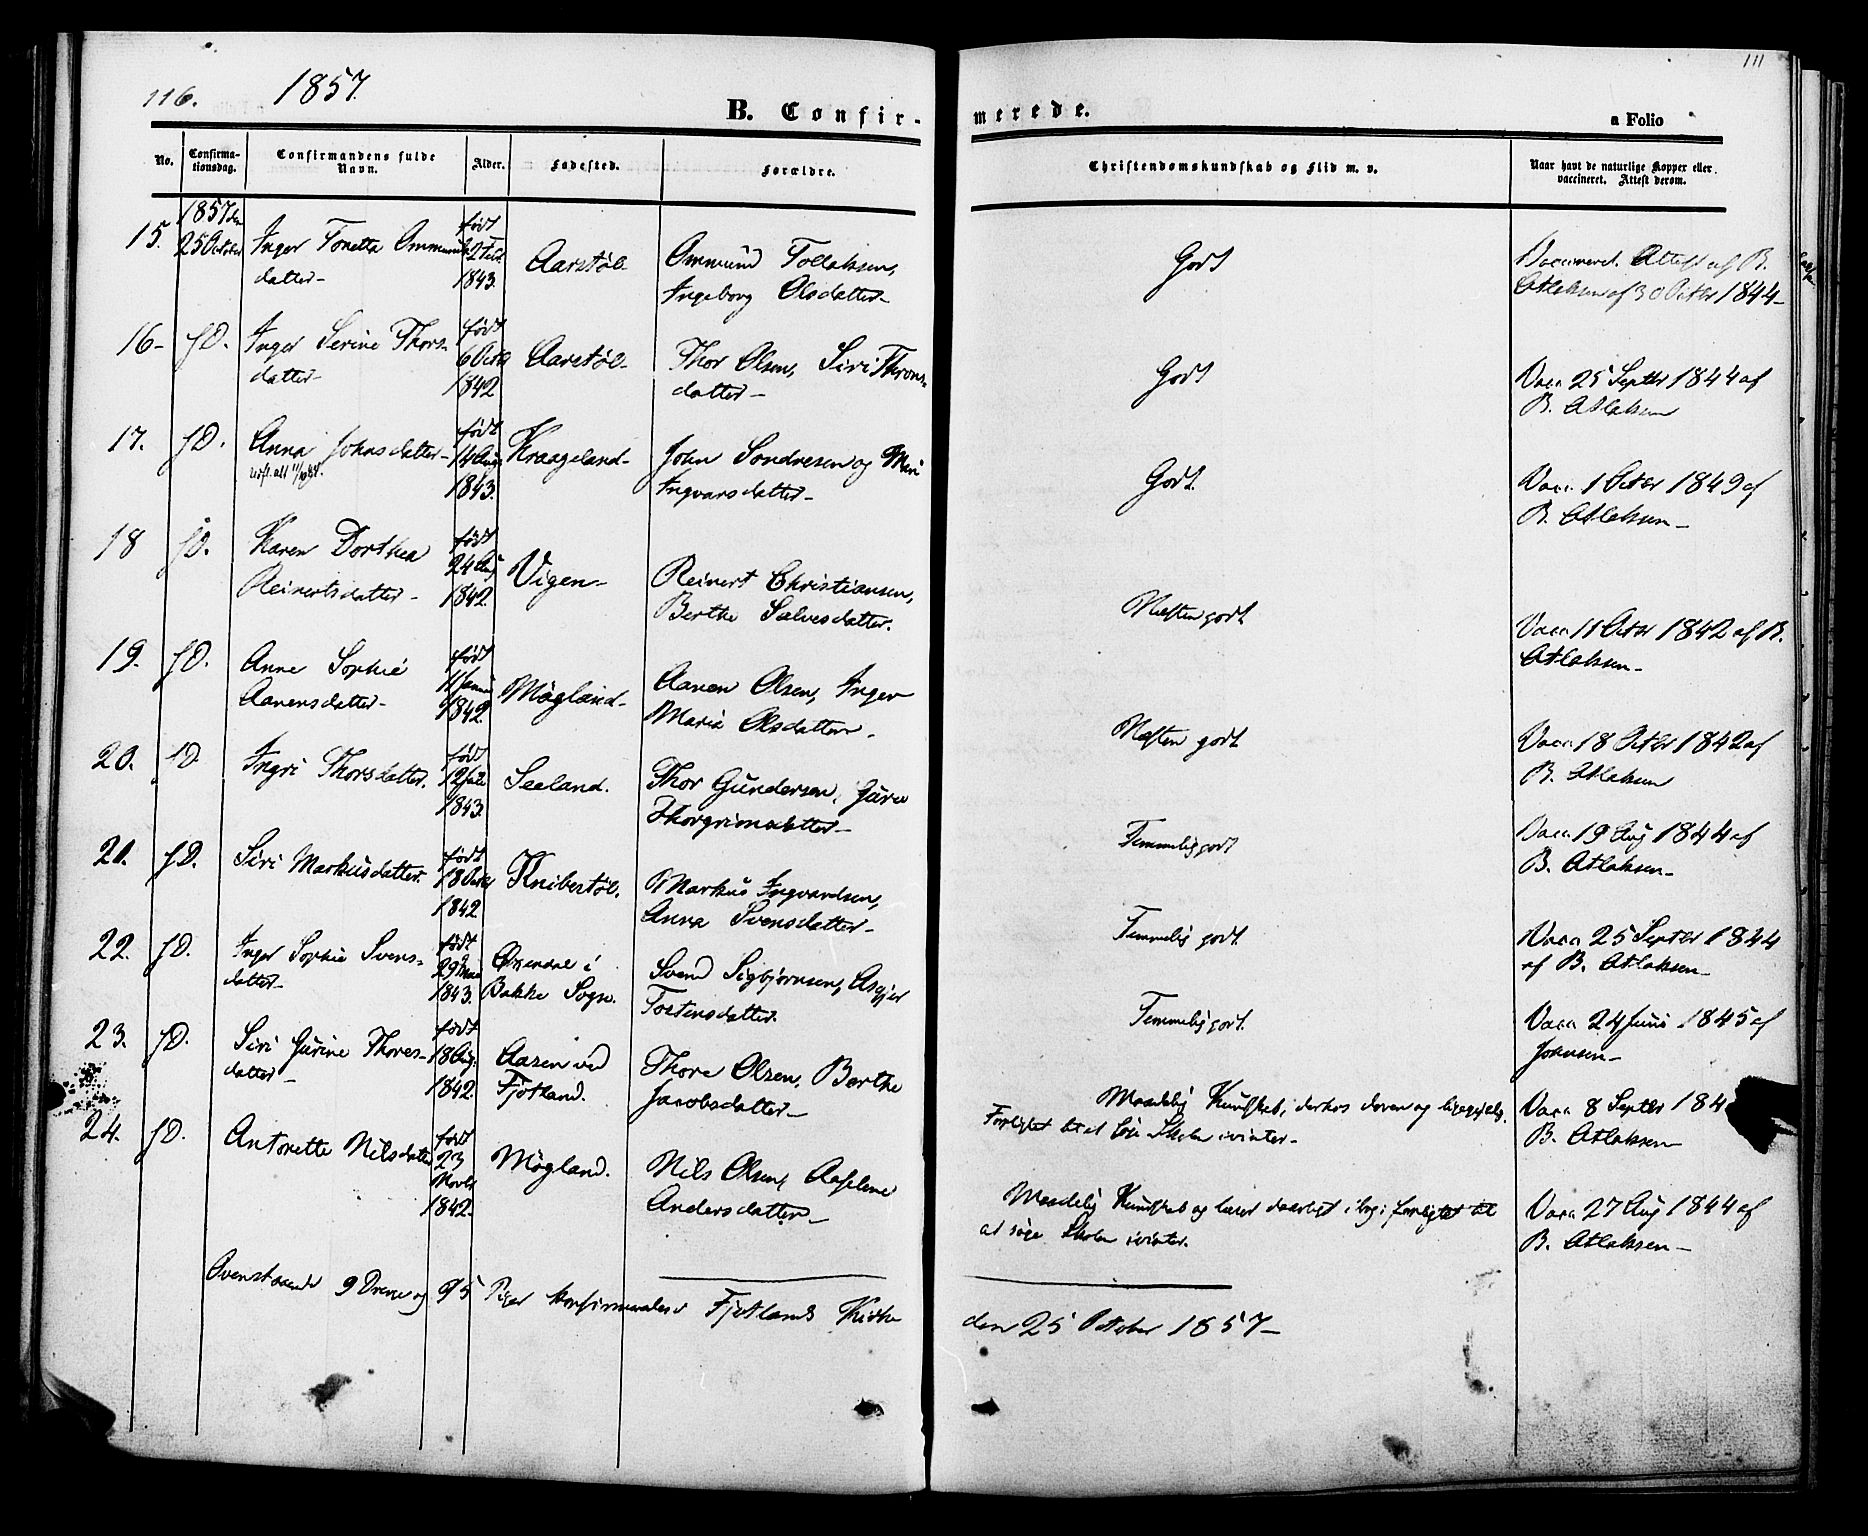 116. 1857.
B. Confir-
merede.
a Folio
111
No.
Confirma-
tionsdag.
Confirmandens fulde
Navn.
Alder.
Fødested.
Forældre.
Christendomskundskab og Flid m. v.
Naar havt de naturlige Kopper eller
vaccineret. Attest derom.
15. 1857 den
25 October Inger Tonetta Ommunds-
datter - født
2 Feb.
1843. Aarstøl - Ommund Tollaksen,
Ingeborg Olsdatter - Godt Vaccineret. Attest af B.
Atlaksen af 30 Octbr 1844 -
16 - JD. Inger Serine Thors-
datter - født
6 Octb
1842 Aarstøl - Thor Olsen, Siri Throns-
datter - Godt Vacc 25 Septbr 1844 af
B. Atlaksen
17. JD. Anna Johnsdatter -
født
14 Aug
1843. Kraageland - John Sondresen og
Ingvarsdatter - Godt. Vacc 1 Octbr 1849 af
B. Atlaksen -
18 JD. Karen Dorthea
Reinertsdatter - født
24 Aug
1842. Vigen - Reinert Christiansen,
Berthe Salvesdatter. Næsten godt. Vacc 11 Octbr 1842 af B.
Atlaksen -
19. JD. Anne Sophie
Aanensdatter - født
11 Juni
1842. Mögland - Aanen Olsen, Inger
Maria Olsdatter - Næsten godt. Vacc 18 Octbr 1842 af
B. Atlaksen
20. JD. Ingri Thorsdatter. født
12 Juli
1843. Seeland. Thor Gundersen, Guro
Thorgrimsdatter - Temmelig godt Vacc 19 Aug 1844 af
B. Atlaksen -
21. JD. Siri Markusdatter. født
18 Octb
1842 Knibestøl. Markus Ingvardsen,
Anna Svensdatter - Temmelig godt. Vacc 25 Septbr 1844
af B. Atlaksen -
22. JD. Inger Sophie Svens-
datter - født
29 Mai
1843. i
Bakke Sogn. Svend Sigbjørnsen, Asgjer
Tostensdatter. Temmelig godt. Vacc 24 Juni 1845 af
Johnsen -
23. JD. Siri Gurine Thores-
datter - født
18 Aug.
1842. Aasen ved
Fjotland. Thore Olsen, Berthe
Jacobsdatter - Maadelig Kundskab, derhos doven og ligegyldig.
Forligtet til at søge Skolen i vinter - Vacc 8 Septbr 184
B. Atlaksen -
24. JD. Antonette Nilsdatter født
23
Novbr
1842. Mögland. Nils Olsen, Aaselene
Andersdatter - Maadelig Kundskab og læser daarligt i bog; forligtet til
at søge Skolen i vinter. Vacc 27 Aug 1844 af
B. Atlaksen -
Ovenstaaende 9 Drenge og 15 Piger konfirmerede i Fjotlands Kirke
den 25 October 1857 -